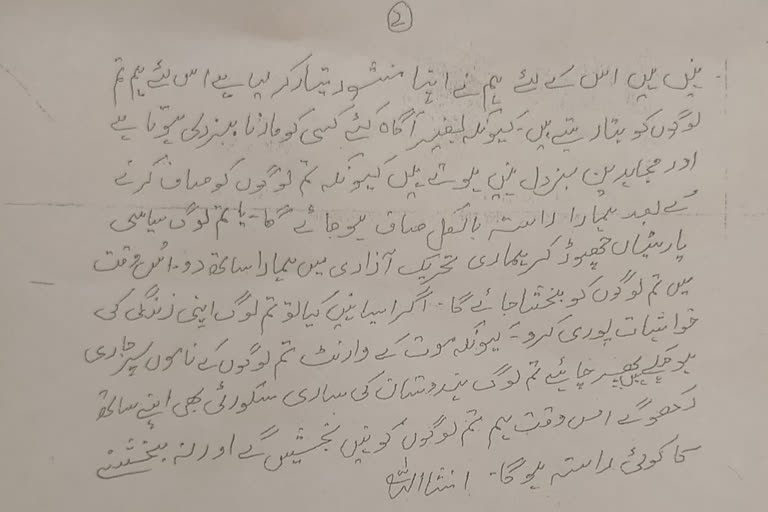 2
نہیں ہیں اس کے لئے ہم نے اپنا منشور تیار کر لیا ہے اس لئے ہم تم
لوگوں کو بتا دیتے ہیں۔ کیونکہ بغیر آگاہ کئے کسی کو مارنا بزدلی ہوتا ہے
اور مجاہدین بزدل نہیں ہوتے ہیں کیونکہ تم لوگوں کو صاف کرنے
کے بعد ہمارا راستہ بالکل صاف ہو جائے گا۔ یا تم لوگ سیاسی
پارٹیاں چھوڑ کر ہماری تحریک آزادی میں ہمارا ساتھ دو۔ اُس وقت
میں تم لوگوں کو بخشا جائے گا۔ اگر ایسا نہیں کیا تو تم لوگ اپنی زندگی کی
خواہشات پوری کرو۔ کیونکہ موت کے وارنٹ تم لوگوں کے ناموں پر جاری
ہو چکے ہیں پھر چاہئے تم لوگ ہندوستان کی ساری سکورٹی بھی اپنے ساتھ
رکھو گے اس وقت ہم تم لوگوں کو نہیں بخشیں گے اور نہ بخشنے
کا کوئی راستہ ہو گا۔ انشااللہ